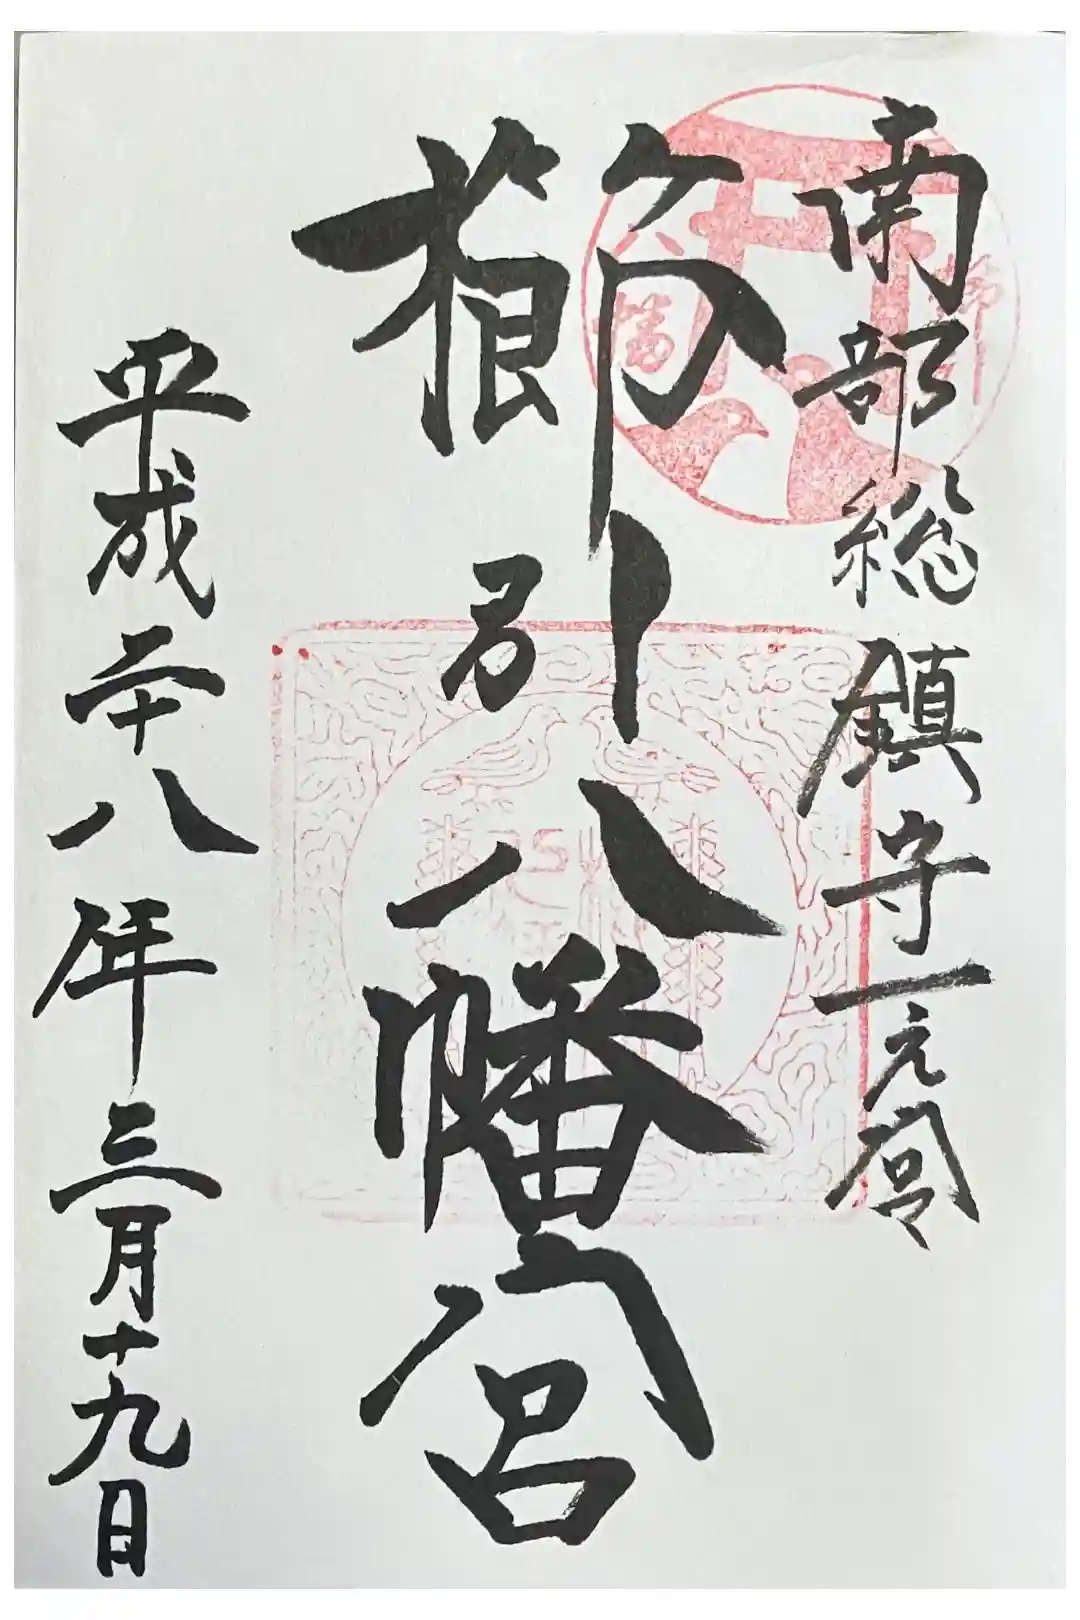 南部総鎮守一之宮
櫛引八幡宮
平成二十八年三月十九日
八幡
櫛